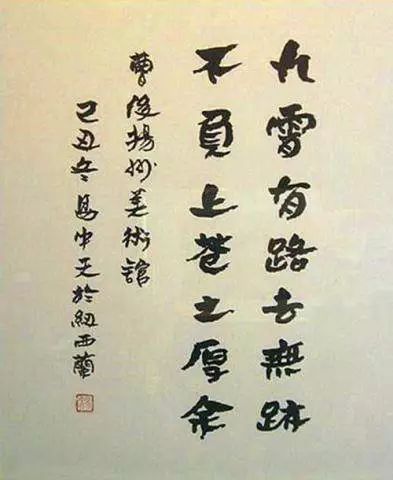 九霄有路去無跡
不負上蒼之厚余
曹俊揚州美術館
己丑冬馬中天於紐西蘭